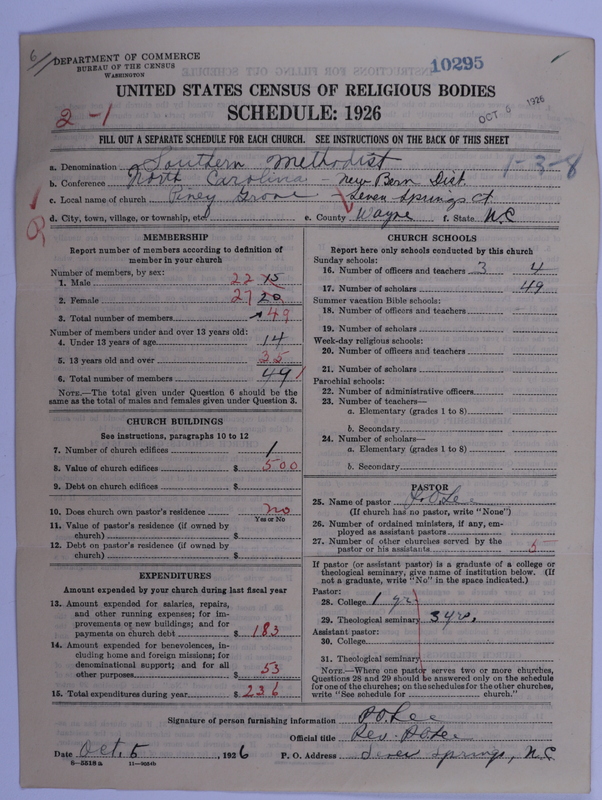 6
DEPARTMENT OF COMMERCE
BUREAU OF THE CENSUS
WASHINGTON
10295
OCT 5 1926
UNITED STATES CENSUS OF RELIGIOUS BODIES
SCHEDULE: 1926
2-1
FILL OUT A SEPARATE SCHEDULE FOR EACH CHURCH. SEE INSTRUCTIONS ON THE BACK OF THIS SHEET
1-3-8
a. Denomination Southern Methodist
b. Conference North Carolina - New Bern Dist.
c. Local name of church Piney Grove - Seven Springs Ct.
d. City, town, village, or township, etc. e. County Wayne f. State N.C
MEMBERSHIP
Report number of members according to definition of
member in your church
Number of members, by sex:
1. Male 22 15
2. Female 27 20
3. Total number of members 49
Number of members under and over 13 years old:
4. Under 13 years of age 14
5. 13 years old and over 35
6. Total number of members 49
NOTE.—The total given under Question 6 should be the
same as the total of males and females given under Question 3.
CHURCH BUILDINGS
See instructions, paragraphs 10 to 12
7. Number of church edifices 1
8. Value of church edifices $ 500
9. Debt on church edifices $
10. Does church own pastor's residence no
Yes or No
11. Value of pastor's residence (if owned by
church) $
12. Debt on pastor's residence (if owned by
church) $
EXPENDITURES
Amount expended by your church during last fiscal year
13. Amount expended for salaries, repairs,
and other running expenses; for im-
provements or new buildings; and for
payments on church debt $ 183
14. Amount expended for benevolences, in-
cluding home and foreign missions; for
denominational support; and for all
other purposes $ 53
15. Total expenditures during year $ 236
CHURCH SCHOOLS
Report here only schools conducted by this church
Sunday schools:
16. Number of officers and teachers 3 4
17. Number of scholars 49
Summer vacation Bible schools:
18. Number of officers and teachers
19. Number of scholars
Week-day religious schools:
20. Number of officers and teachers
21. Number of scholars
Parochial schools:
22. Number of administrative officers
23. Number of teachers—
a. Elementary (grades 1 to 8)
b. Secondary
24. Number of scholars—
a. Elementary (grades 1 to 8)
b. Secondary
PASTOR
25. Name of pastor P.O. Lee
(If church has no pastor, write "None")
26. Number of ordained ministers, if any, em-
ployed as assistant pastors
27. Number of other churches served by the
pastor or his assistants 5
If pastor (or assistant pastor) is a graduate of a college or
theological seminary, give name of institution below. (If
not a graduate, write "No" in the space indicated.)
Pastor:
28. College 1 yr.
29. Theological seminary 3 yrs.
Assistant pastor:
30. College
31. Theological seminary
NOTE.—Where one pastor serves two or more churches,
Questions 28 and 29 should be answered only on the schedule
for one of the churches; on the schedules for the other churches,
write "See schedule for church."
Signature of person furnishing information P.O. Lee
Official title Rev. P.O. Lee
Date Oct. 5, 1926 P. O. Address Seven Springs, N.C
8—5518a